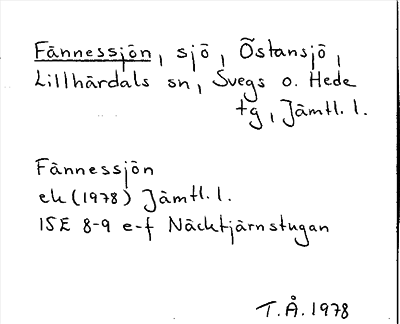 Fännessjön, sjö, Östansjö,
Lillhärdals sn, Svegs o. Hede
tg, Jämtl. l.
Fännessjön
ek (1978) Jämtl. l.
15E 8-9 e-f Näcktjärnstugan
T.Å. 1978